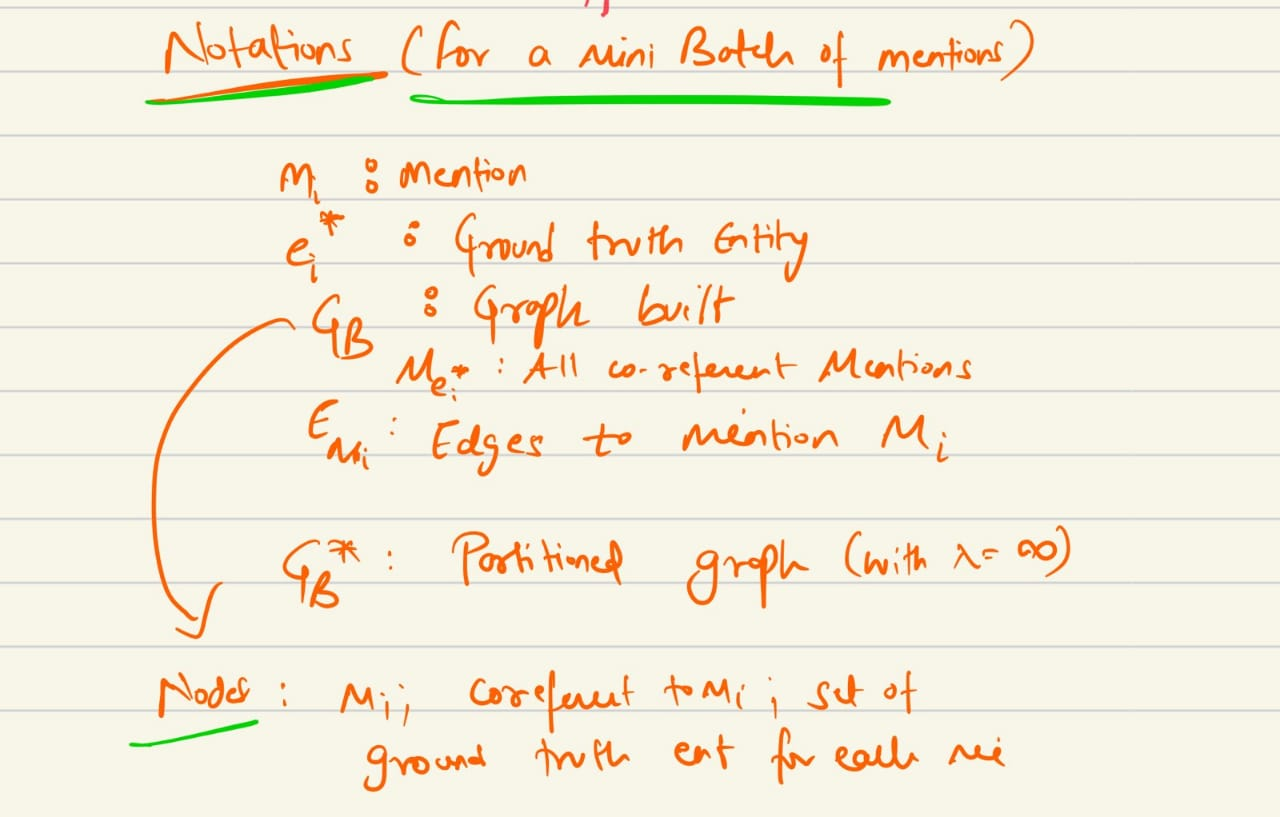 Notations (for a Mini Batch of mentions)
Mᵢ : Mention
eᵢ* : Ground truth Entity
G_B : Graph built
M_eᵢ* : All co-referent Mentions
E_Mᵢ : Edges to mention Mᵢ
G_B* : Partitioned graph (with λ = ∞)
Nodes : Mᵢ ; coreferent to Mᵢ ; set of
ground truth ent for each mi